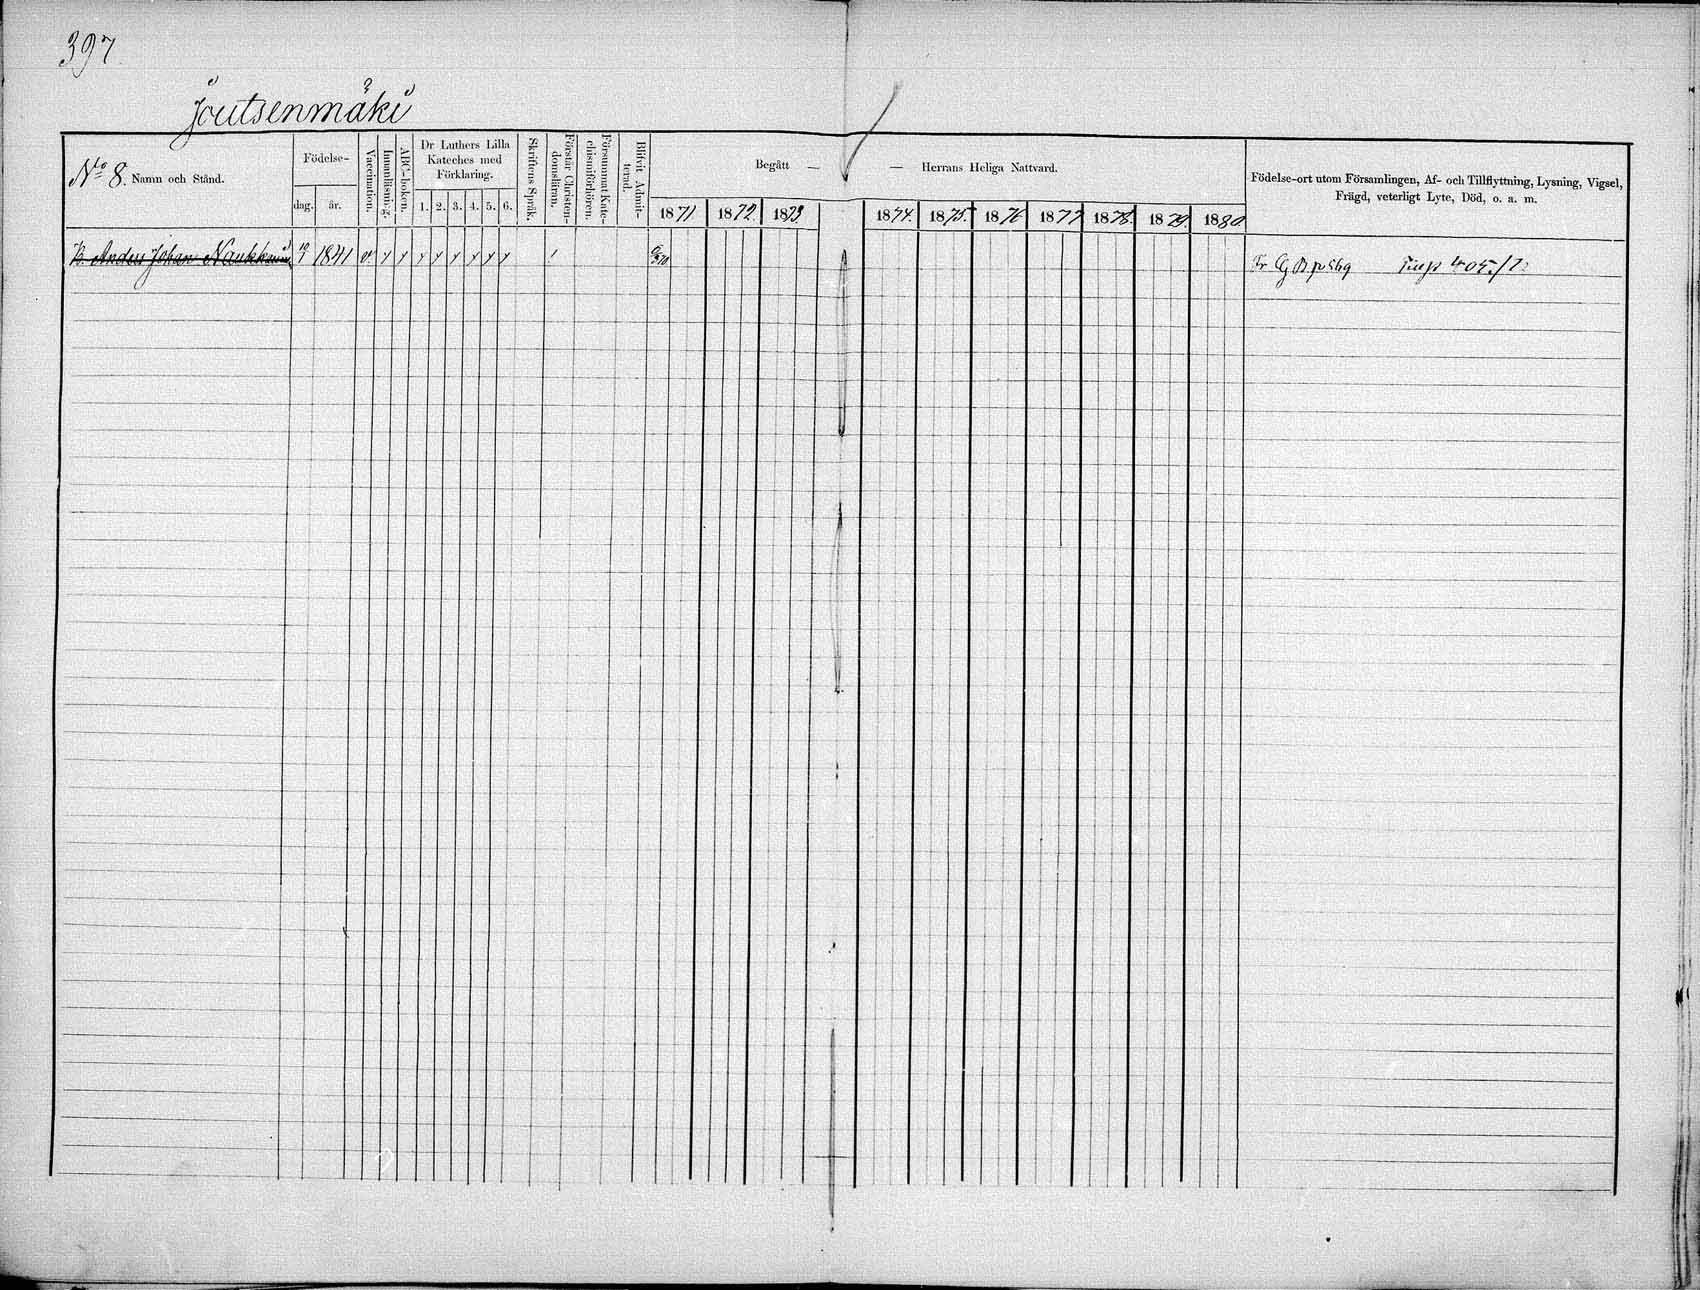 397
Joutsenmäki
No 8. Namn och Stånd.
Födelse-
dag. år.
Vaccination.
Innanläsning.
ABC-boken.
Dr Luthers Lilla
Kateches med
Förklaring.
1. 2. 3. 4. 5. 6.
Skriftens Språk.
Förstår Christen-
domsläran.
Försummat Kate-
chismiförhören.
Blifvit Admit-
terad.
Begått — — Herrans Heliga Nattvard.
1871 1872. 1873. 1874. 1875. 1876 1877 1878. 1879. 1880.
Födelse-ort utom Församlingen, Af- och Tillflyttning, Lysning, Vigsel,
Frägd, veterligt Lyte, Död, o. a. m.
B. Anders Johan Naukkarin 19/1 1841 v.
Fr Cg B p 569 405./72